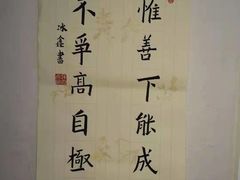 惟善下能成
不爭高自極
冰鑫書